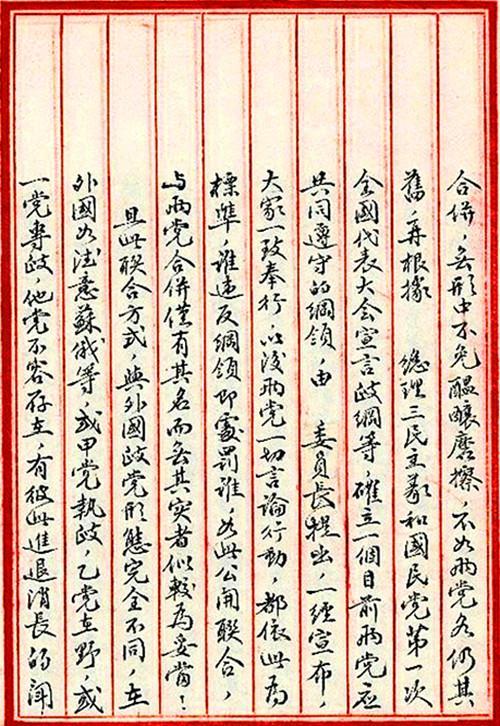 合併，無形中不免醞釀磨擦，不如兩党各仍其
舊，再根據　總理三民主義和國民党第一次
全國代表大会宣言政綱等，確立一個目前兩党应
共同遵守的綱領，由　委員長提出，一經宣布，
大家一致奉行，以後兩党一切言論行動，都依此為
標準，谁違反綱領即處罰谁，如此公開联合，
与兩党合併僅有其名而無其实者似較為妥當！
且此联合方式，與外國政党形態完全不同，在
外國如法意蘇俄等，或甲党執政，乙党在野，或
一党專政，他党不容存在，有彼此進退消長的闹